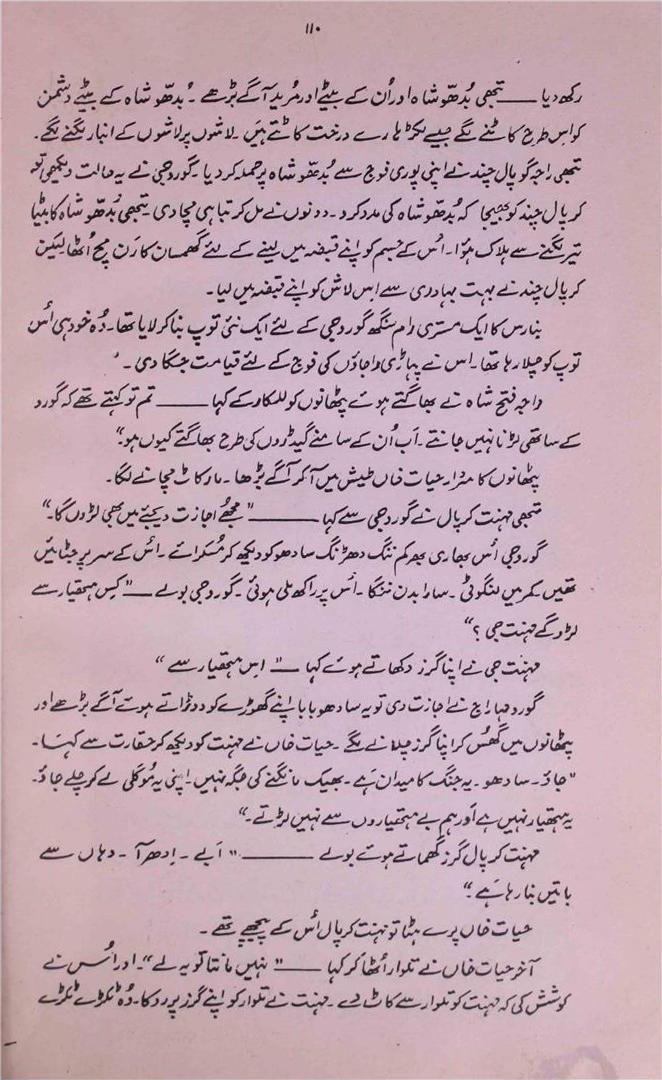 ۱۱۰
رکھ دیا ــــــ تبھی بُدھو شاہ اور اُن کے بیٹے اور مُرید آگے بڑھے ۔ بُدھو شاہ کے بیٹے دشمن
کو اِس طرح کاٹنے لگے جیسے لکڑہارے درخت کاٹتے ہیں ۔ لاشوں پر لاشوں کے انبار لگنے لگے۔
تبھی راجہ گوپال چند نے اپنی پوری فوج سے بُدھو شاہ پر حملہ کر دیا ۔ گورو جی نے یہ حالت دیکھی تو
کرپال چند کو بھیجا کہ بُدھو شاہ کی مدد کرو ۔ دونوں نے مل کر تباہی مچا دی ۔ تبھی بُدھو شاہ کا بیٹا
تیر لگنے سے ہلاک ہوا ۔ اُس کے جسم کو اپنے قبضہ میں لینے کے لئے گھمسان کا رَن مچ اُٹھا لیکن
کرپال چند نے بہت بہادری سے اس لاش کو اپنے قبضہ میں لیا ۔
بنارس کا ایک مستری رام سنگھ گورو جی کے لئے ایک نئی توپ بنا کر لایا تھا ۔ وُہ خود ہی اُس
توپ کو چلا رہا تھا ۔ اس نے پہاڑی راجاؤں کی فوج کے لئے قیامت جگا دی ۔
راجہ فتح شاہ نے بھاگتے ہوئے پٹھانوں کو للکار کے کہا ــــــ تم تو کہتے تھے کہ گورو
کے ساتھی لڑنا نہیں جانتے ۔ اَب اُن کے سامنے گیدڑوں کی طرح بھاگتے کیوں ہو ۔"
پٹھانوں کا سردار حیات خاں طیش میں آ کر آگے بڑھا ۔ مار کاٹ مچانے لگا ۔
تبھی مہنت کرپال نے گورو جی سے کہا ــــــ " مجھے اجازت دیجئے میں بھی لڑوں گا ۔"
گورو جی اُس بھاری بھرکم ننگ دھڑنگ سادھو کو دیکھ کر مُسکرائے ۔ اُس کے سر پر جٹائیں
تھیں کمر میں لنگوٹی ۔ سارا بدن ننگا ۔ اُس پر راکھ ملی ہوئی ۔ گورو جی بولے ــــــ " کِس ہتھیار سے
لڑو گے مہنت جی ؟ "
مہنت جی نے اپنا گرز دکھاتے ہوئے کہا ــــــ " اِس ہتھیار سے "
گورو مہاراج نے اجازت دی تو یہ سادھو بابا اپنے گھوڑے کو دوڑاتے ہوئے آگے بڑھے اور
پٹھانوں میں گھُس کر اپنا گرز چلانے لگے ۔ حیات خاں نے مہنت کو دیکھ کر حقارت سے کہا ۔
" جاؤ ۔ سادھو ۔ یہ جنگ کا میدان ہَے ۔ بھیک مانگنے کی جگہ نہیں ۔ اپنی یہ مُوگلی لے کر چلے جاؤ ۔
یہ ہتھیار نہیں ہے اَور ہم بے ہتھیاروں سے نہیں لڑتے ۔"
مہنت کرپال گرز گھماتے ہوئے بولے ــــــ " اَبے ۔ اِدھر آ ۔ وہاں سے
باتیں بنا رہا ہَے ۔"
حیات خاں پرے ہٹا تو مہنت کرپال اُس کے پیچھے تھے ۔
آخر حیات خاں نے تلوار اُٹھا کر کہا ــــــ " نہیں مانتا تو یہ لے " ۔ اور اُس نے
کوشش کی کہ مہنت کو تلوار سے کاٹ دے ۔ مہنت نے تلوار کو اپنے گرز پر روکا ۔ وُہ ٹکڑے ٹکڑے